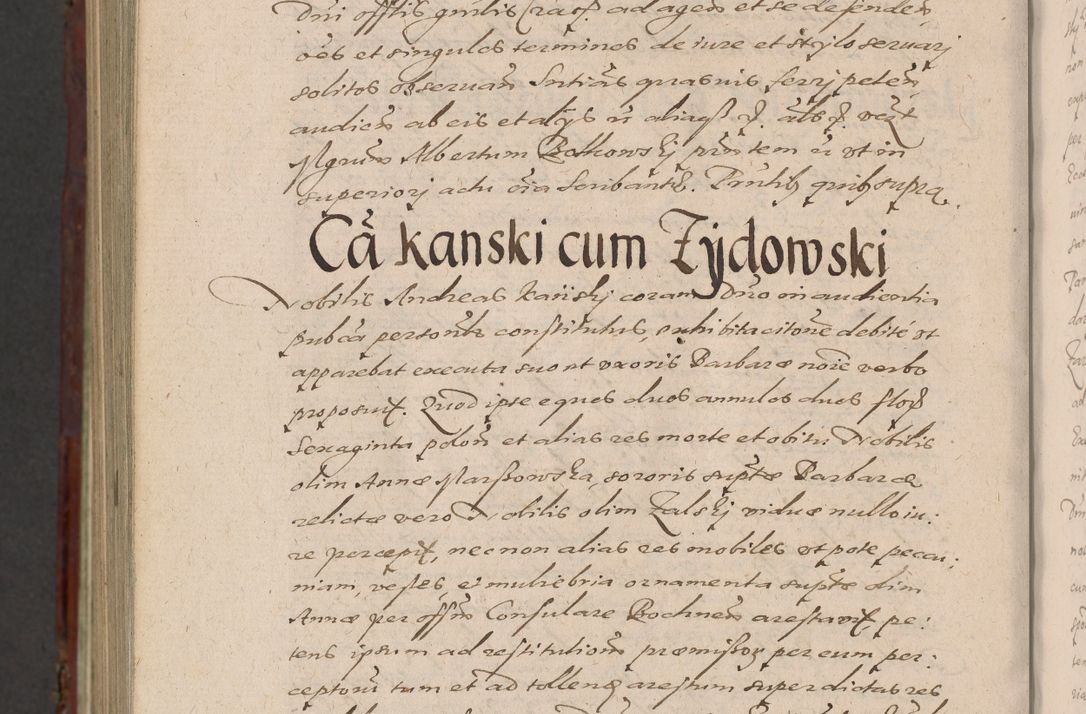 Dni offtis gnilis Crac. ad agen et se defenden
oes et singulos terminos de iure et stylo seruarj
solitos obseruan Sntias quasuis ferrj peten
audien ab eis et alijs
Mgrum Albertum Bolkowskj pntem et vt in
superiorj actu cia scribante. Pntib quib supra.
Ca Kanski cum Zydowski
Nobilis Andreas Kanskj coram Dno in audientia
publca personlr constitutus, exhibita citone debite vt
apparebat executa suo et vxoris Barbaræ noie verbo
proposuit. Quod ipse eques duos annulos duos flor
Sexaginta polon et alias res morte et obitu Nobilis
olim Annæ Marszowska, sororis suptæ Barbaræ
relictæ vero Nobilis olim Zalskj viduæ nullo iu:
re percepit, nec non alias res mobiles vt pote pecu:
niam, vestes, et muliebria ornamenta suptæ olim
Annæ per offm Consulare Bochnen arestavit, pe:
tens ipsum ad restitutionem præmissor per eum per:
ceptoru tum et ad tollend arestum super dictas res